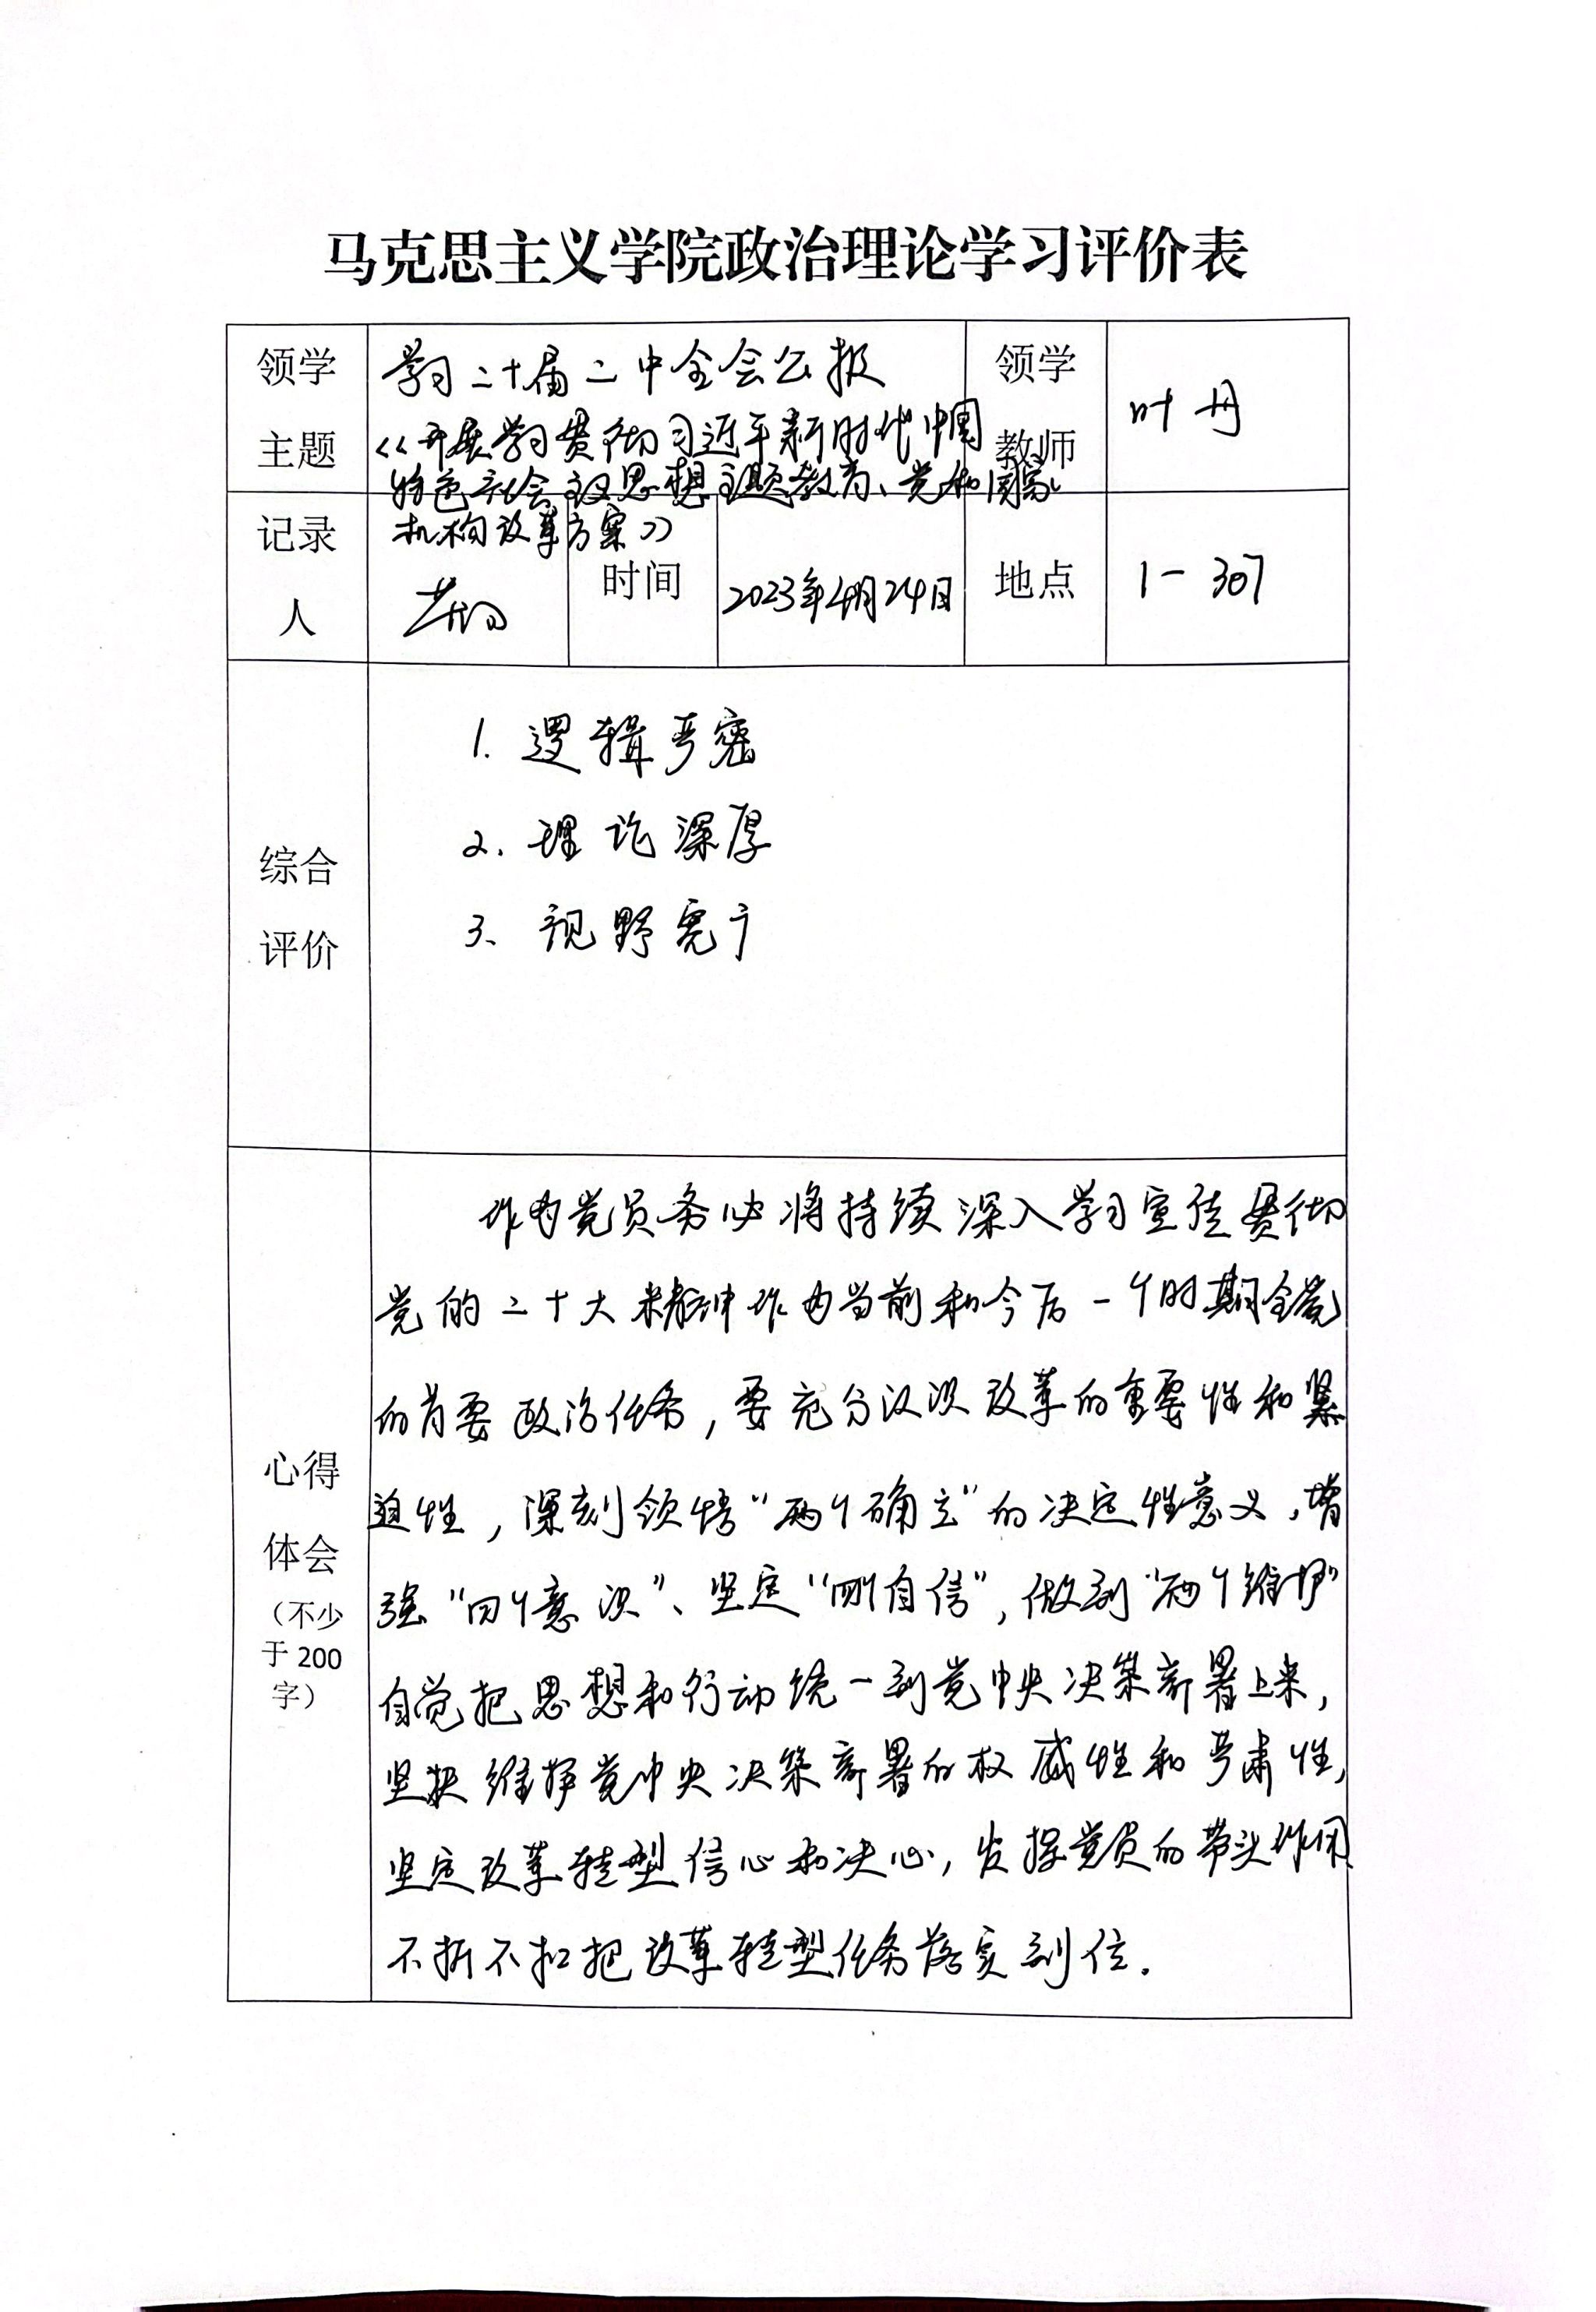 马克思主义学院政治理论学习评价表
领学主题
学习二十届二中全会公报
《开展学习贯彻习近平新时代中国
特色社会主义思想主题教育、党和国家
机构改革方案》
领学教师
叶丹
记录人
时间
2023年4月24日
地点
1-307
综合评价
1. 逻辑严密
2、理论深厚
3、视野宽广
心得体会
（不少于200字）
作为党员务必将持续深入学习宣传贯彻
党的二十大精神作为当前和今后一个时期全党
的首要政治任务，要充分认识改革的重要性和紧
迫性，深刻领悟“两个确立”的决定性意义，增
强“四个意识”、坚定“四个自信”，做到“两个维护”
自觉把思想和行动统一到党中央决策部署上来，
坚决维护党中央决策部署的权威性和严肃性，
坚定改革转型信心和决心，发挥党员的带头作用
不折不扣把改革转型任务落实到位．